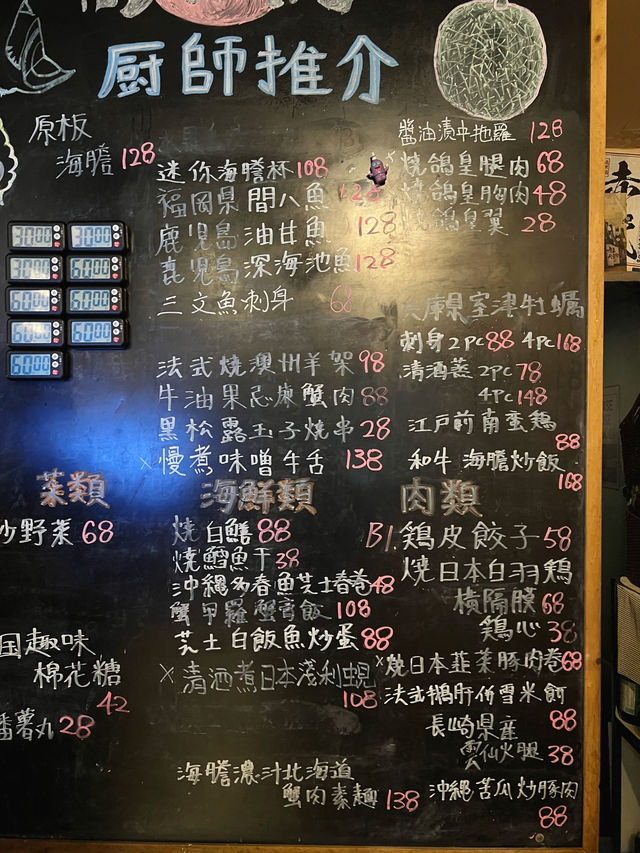 厨師推介
原板
海膽 128
迷你海膽杯 108
福岡県間八魚 128
鹿児島油甘魚 128
鹿児島深海池魚 128
三文魚刺身 68
法式燒澳州羊架 98
牛油果忌廉蟹肉 88
黒松露玉子燒串 28
×慢煮味噌牛舌 138
醬油漬中拖羅 128
燒鴿皇腿肉 68
燒鴿皇胸肉 48
燒鴿皇翼 28
兵庫県室津牡蠣
刺身 2pc 88 4pc 168
清酒蒸 2pc 78
4pc 148
江戸前南蛮鶏
88
和牛海膽炒飯
168
菜類
炒野菜 68
国趣味
棉花糖
42
番薯丸 28
海鮮類
燒白鱔 88
燒鱈魚干 38
沖縄多春魚芝士春卷 48
蟹甲羅蟹膏飯 108
芝士白飯魚炒蛋 88
×清酒煮日本淺利蜆
108
海膽濃汁北海道
蟹肉素麺 138
肉類
B1.鶏皮餃子 58
燒日本白羽鶏
橫隔膜 68
鶏心 38
×燒日本韮菜豚肉卷 68
法式鵝肝伴雪米餅
88
長崎県産
雲仙火腿 38
沖縄苦瓜炒豚肉
88